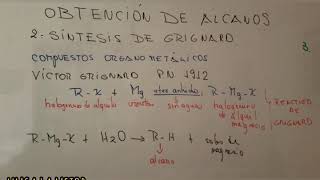 OBTENCIÓN DE ALCANOS
2. SÍNTESIS DE GRIGNARD
COMPUESTOS ORGANOMETÁLICOS
VÍCTOR GRIGNARD PN 1912
R-X + Mg éter anhidro R-Mg-X
halogenuro de alquilo virutas sin agua halogenuro de alquil magnesio
REACTIVO DE GRIGNARD
R-Mg-X + H2O → R-H + sales de magnesio
alcano